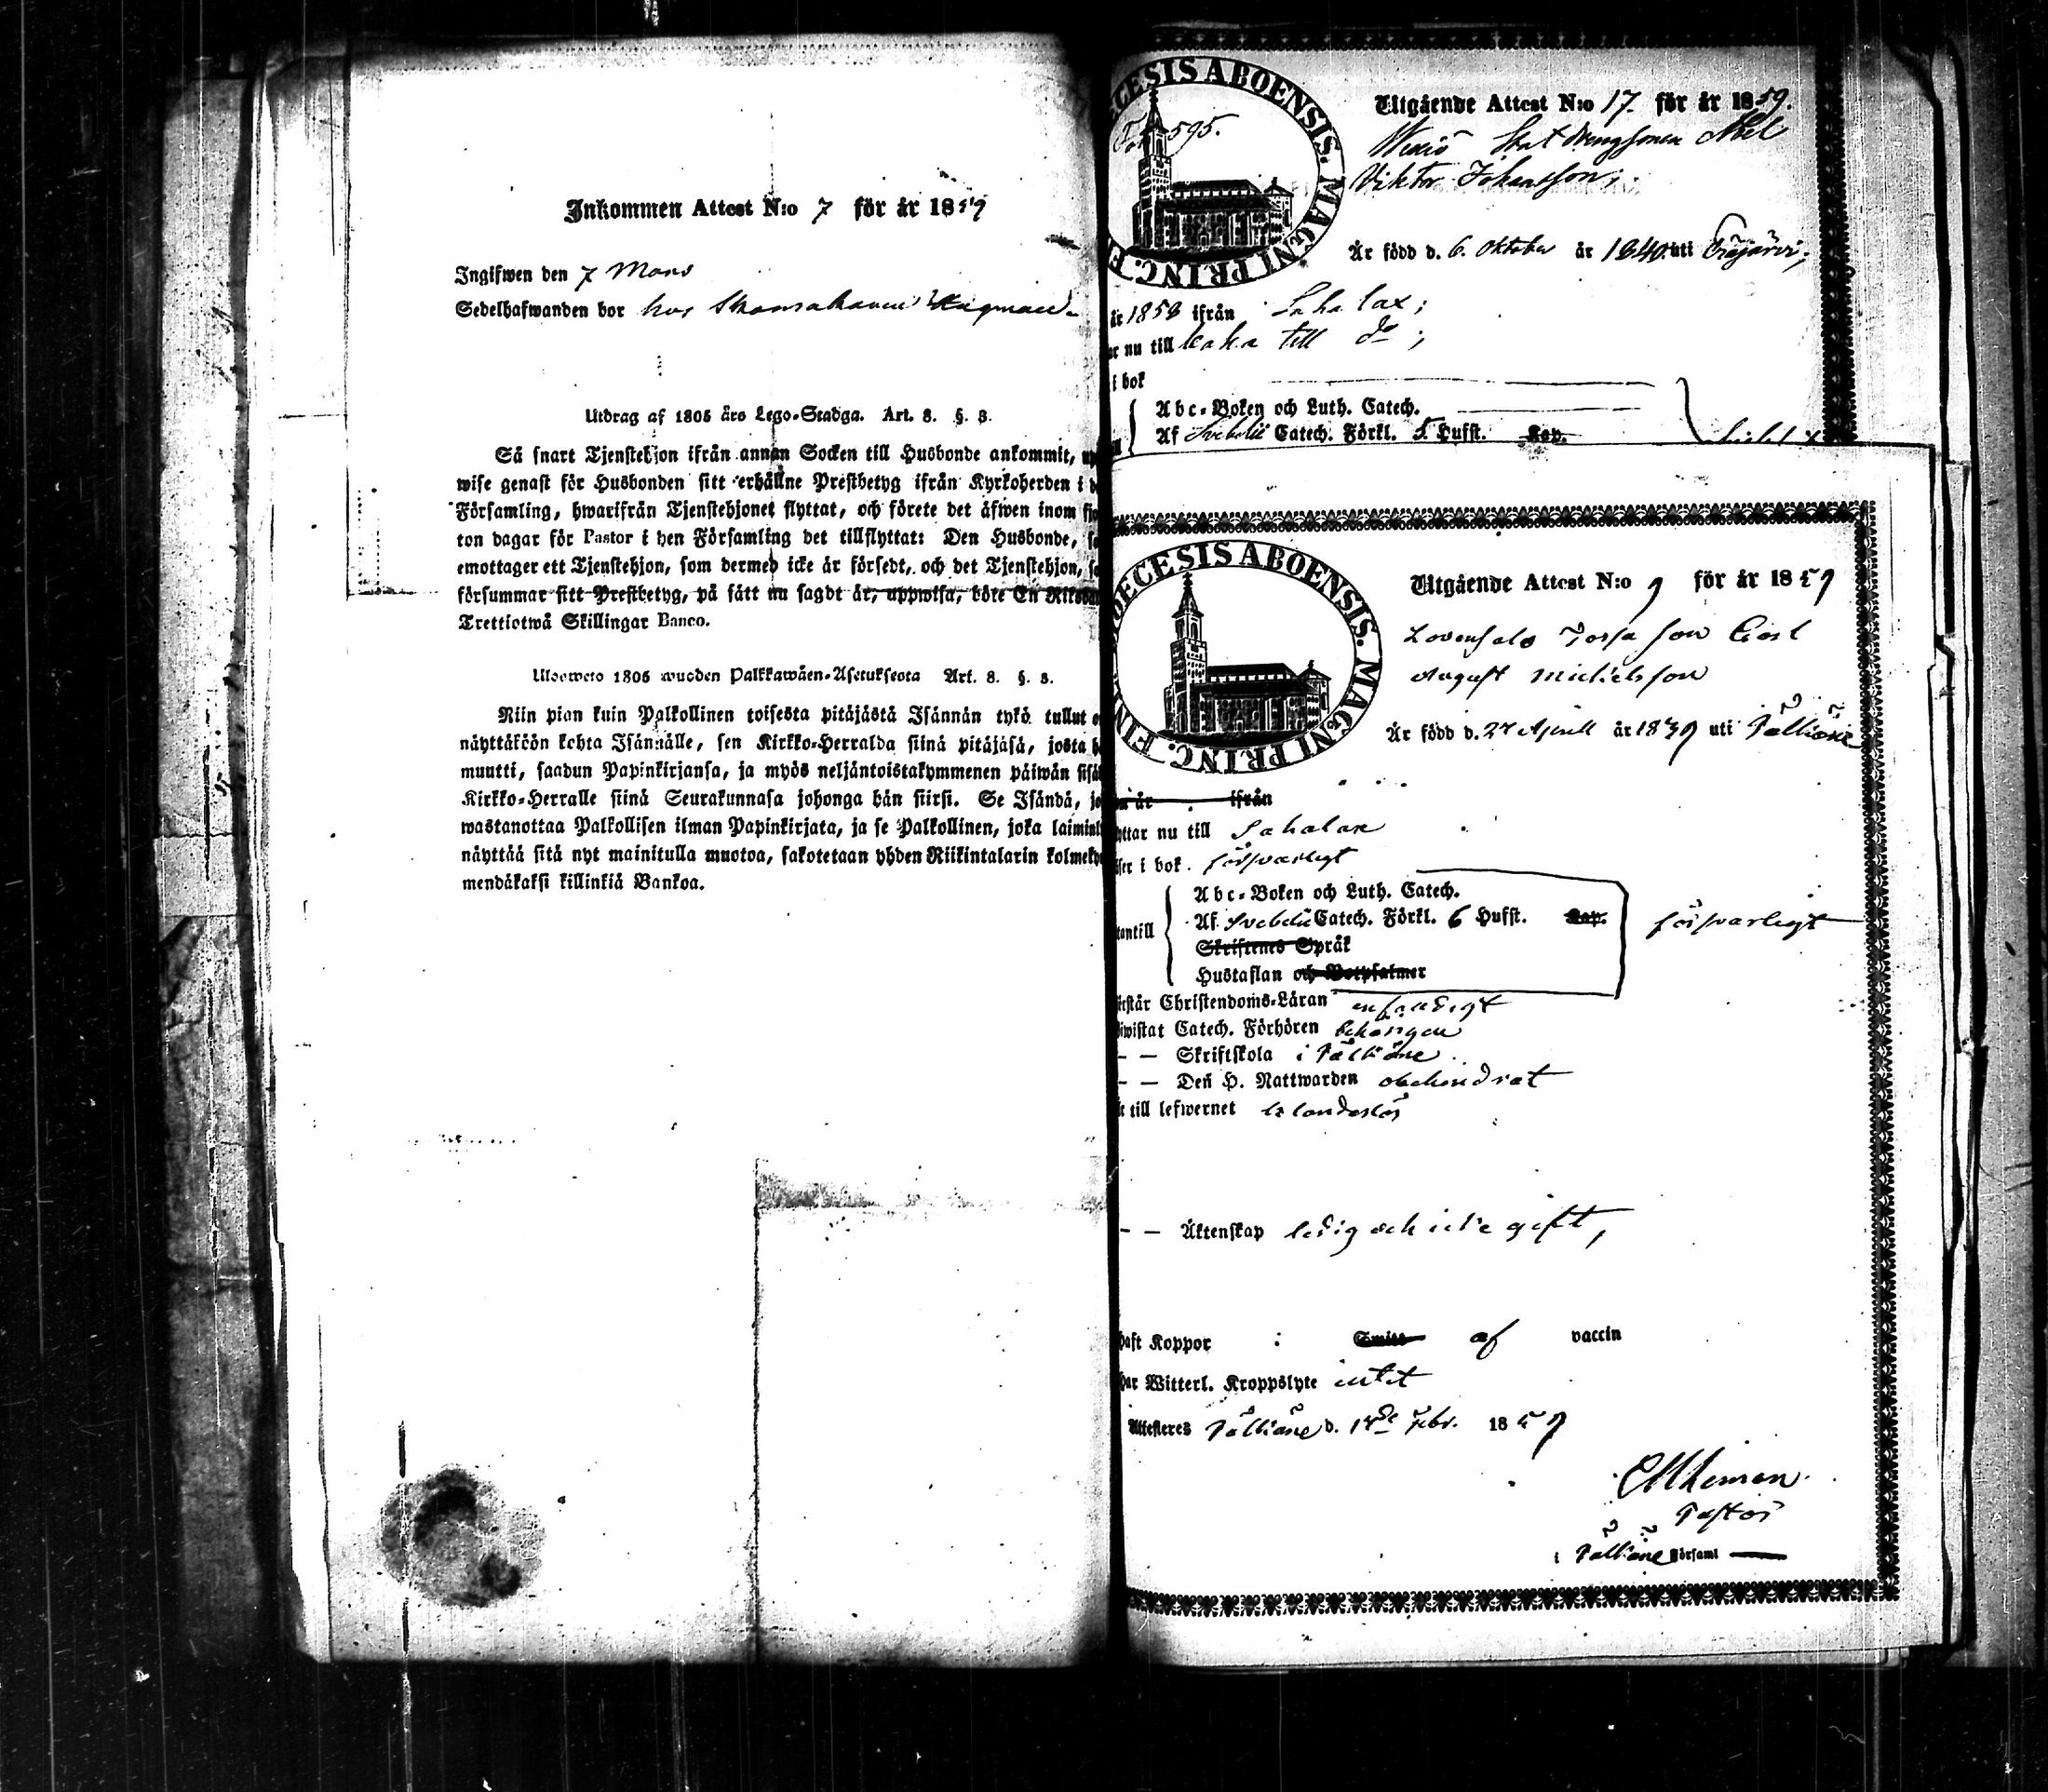 Inkommen Attest N:o 7 för år 1859
Ingifwen den 7 Mars
Sedelhafwanden bor hos
Utdrag af 1805 års Lego-Stadga. Art. 8. §. 8.
Så snart Tjenstehjon ifrån annan Socken till Husbonde ankommit,
wise genast för Husbonden sitt erhållne Prestbetyg ifrån Kyrkoherden i
Församling, hwarifrån Tjenstehjonet flyttat, och förete det äfwen inom
ton dagar för Pastor i den Församling det tillflyttat: Den Husbonde,
emottager ett Tjenstehjon, som dermed icke är försedt, och det Tjenstehjon,
försummar sitt Prestbetyg, på sätt nu sagdt är, uppwisa, böte En
Trettiotwå Skillingar Banco.
1805 wuoden Palkkawäen-Asetuksesta Art. 8. §. 8.
Niin pian kuin Palkollinen toisesta pitäjästä Isännän tykö tullut
näyttäköön kohta Isännälle, sen Kirkko-Herralda siinä pitäjäsä, josta
muutti, saadun Papinkirjansa, ja myös neljäntoistakymmenen päiwän
Kirkko-Herralle siinä Seurakunnasa johonga hän siirsi. Se Isändä,
wastanottaa Palkollisen ilman Papinkirjata, ja se Palkollinen, joka
näyttää sitä nyt mainitulla muotoa, sakotetaan yhden Riikintalarin
mendäkaksi killinkiä Bankoa.
ECESIS ABOENSIS. MAGNI PRINC. FI
595.
Utgående Attest N:o 17. för år 1859.
Abel
Viktor Johansson,
Är född d. 6. Oktober år 1840 uti
år 1858 ifrån Sahalax;
nu till baka till do;
i bok
Abc-Boken och Luth. Catech.
Af Svebelii Catech. Förkl. 5 Hufst. Kap.
DECESIS ABOENSIS. MAGNI PRINC. FIN
Utgående Attest N:o 9 för år 1859
son Carl
August Michelsson
Är född d. 27 April år 1839 uti Pälkäne
år ifrån
nu till Sahalax
i bok försvarligt
Abc-Boken och Luth. Catech.
Af Svebelii Catech. Förkl. 6 Hufst. Kap.
Skriftenes Språk
Hustaflan och Botpsalmer
försvarligt
Christendoms-Läran enfaldigt
Catech. Förhören behörigen
— — Skriftskola i Pälkäne
— — Den H. Nattwarden obehindrat
till lefwernet klanderlös
— — Äktenskap ledig och icke gift,
haft Koppor : Smitt af vaccin
har Witterl. Kroppslyte intet
Attesteres Pälkäne d. Febr. 1859
Pastor
i Pälkäne Församl